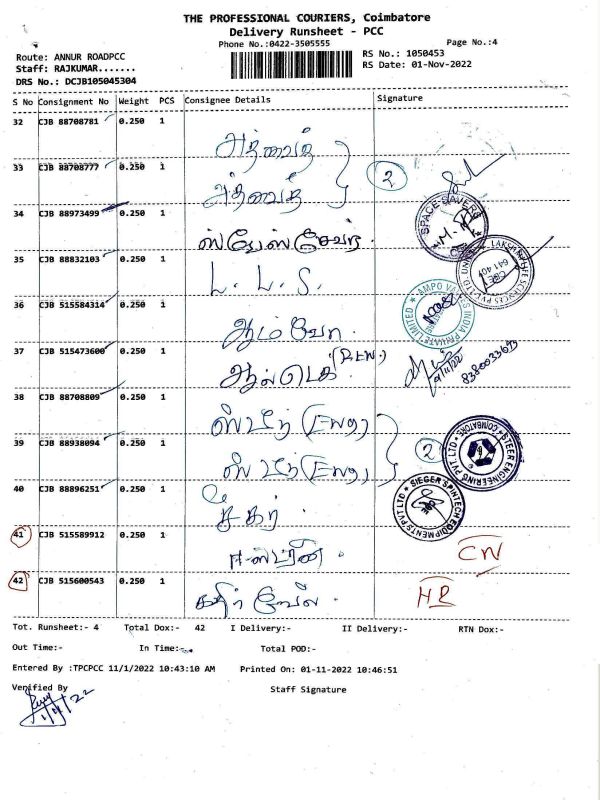 THE PROFESSIONAL COURIERS, Coimbatore
Delivery Runsheet - PCC
Phone No.:0422-3505555
Page No.:4
Route: ANNUR ROADPCC
RS No.: 1050453
Staff: RAJKUMAR.......
RS Date: 01-Nov-2022
DRS No.: DCJB105045304
S No Consignment No Weight PCS Consignee Details Signature
32 CJB 88708781 0.250 1
அத்வைத்
33 CJB 88708777 0.250 1
அத்வைத்
2
34 CJB 88973499 0.250 1
ஸ்பேஸ் சேவர்.
SPACE SAVERS
35 CJB 88832103 0.250 1
L. L. S.
36 CJB 515584314 0.250 1
ஆம்வோ.
AMPO VALVES INDIA PRIVATE LIMITED
37 CJB 515473600 0.250 1
ஆல்டெக்
38 CJB 88708809 0.250 1
ஸ்டீர் (Eng)
39 CJB 88938094 0.250 1
ஸ்டீர் (Eng)
2
STEER ENGINEERING PVT. LTD COIMBATORE
40 CJB 88896251 0.250 1
சீகர்.
SIEGER SPINTECH EQUIPMENTS PVT LTD
41 CJB 515589912 0.250 1
CN
42 CJB 515600543 0.250 1
கதிர் வேல்.
HR
Tot. Runsheet:- 4 Total Dox:- 42 I Delivery:- II Delivery:- RTN Dox:-
Out Time:- In Time:- Total POD:-
Entered By :TPCPCC 11/1/2022 10:43:10 AM Printed On: 01-11-2022 10:46:51
Verified By Staff Signature